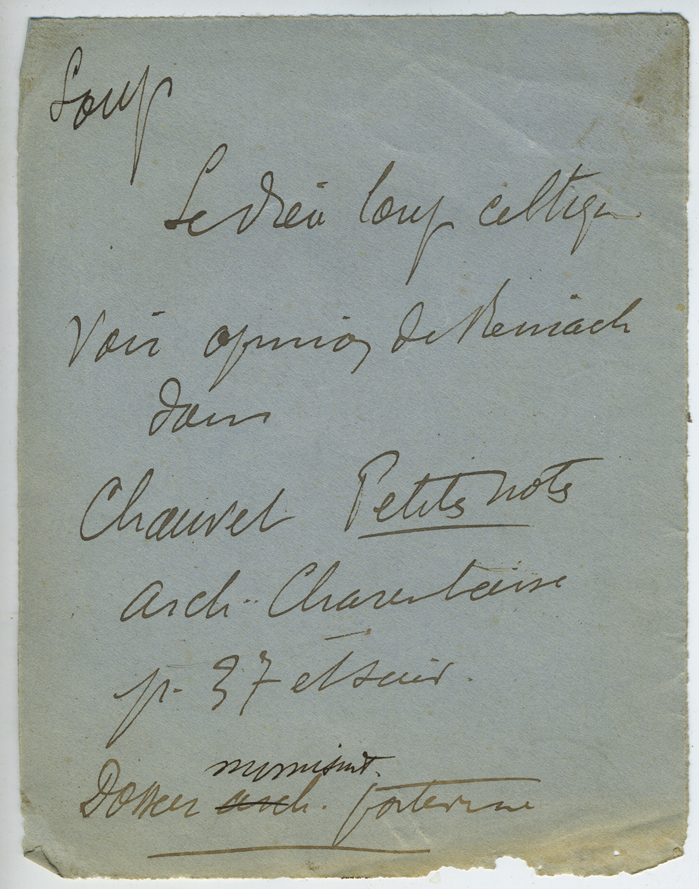 Loup
Le dieu loup celtique
Voir opinion de Reinach
dans
Chauvet Petites notes
arch. Charentaise
p. 37 et suiv.
numismat.
Dossier arch.